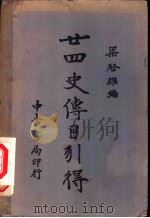 梁啓雄編
廿四史傳目引得
中華書局印行